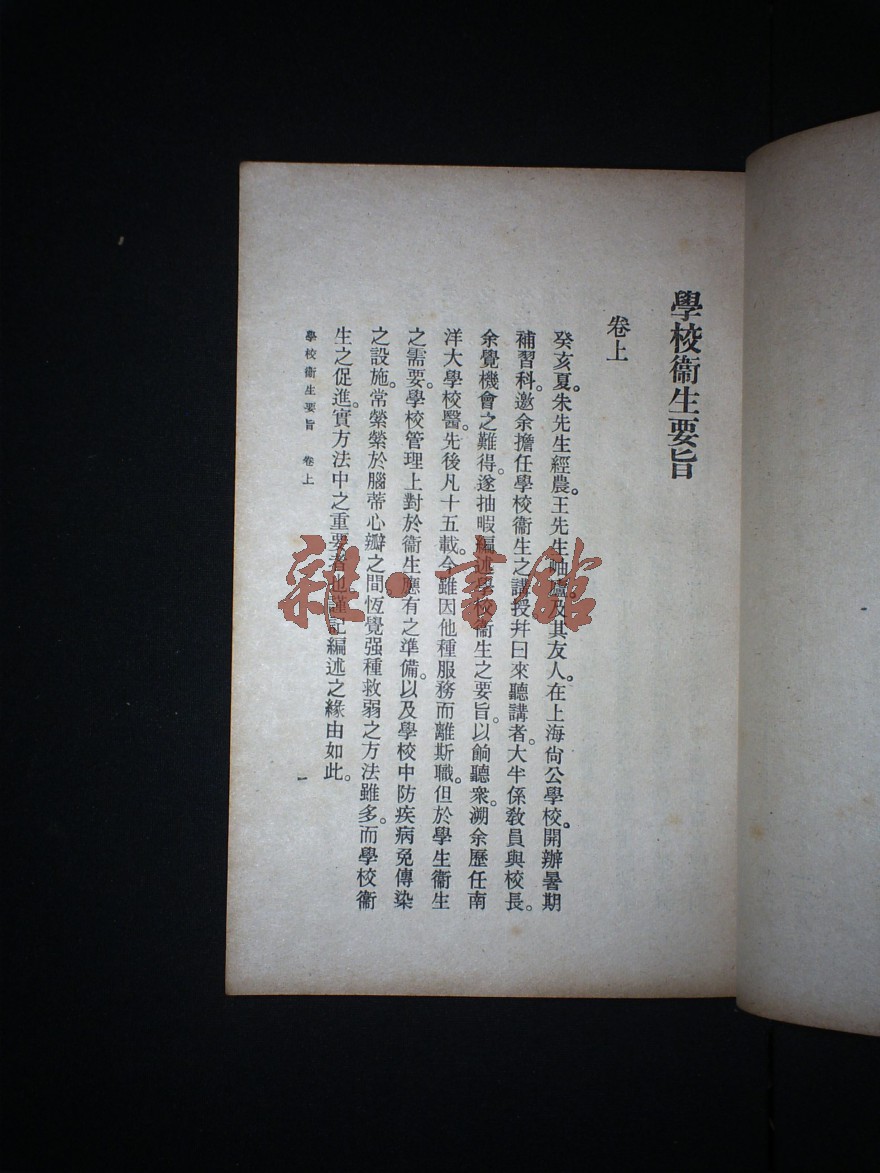 學校衞生要旨
卷上
癸亥夏。朱先生經農。王先生岫廬及其友人。在上海尙公學校。開辦暑期
補習科。邀余擔任學校衞生之講授幷曰來聽講者。大半係敎員與校長。
余覺機會之難得。遂抽暇編述學校衞生之要旨。以餉聽衆。溯余歷任南
洋大學校醫。先後凡十五載。今雖因他種服務而離斯職。但於學生衞生
之需要。學校管理上對於衞生應有之準備。以及學校中防疾病免傳染
之設施。常縈縈於腦蒂心瓣之間恆覺强種救弱之方法雖多。而學校衞
生之促進。實方法中之重要者也。謹記編述之緣由如此。
學校衞生要旨 卷上
一
雜·書館